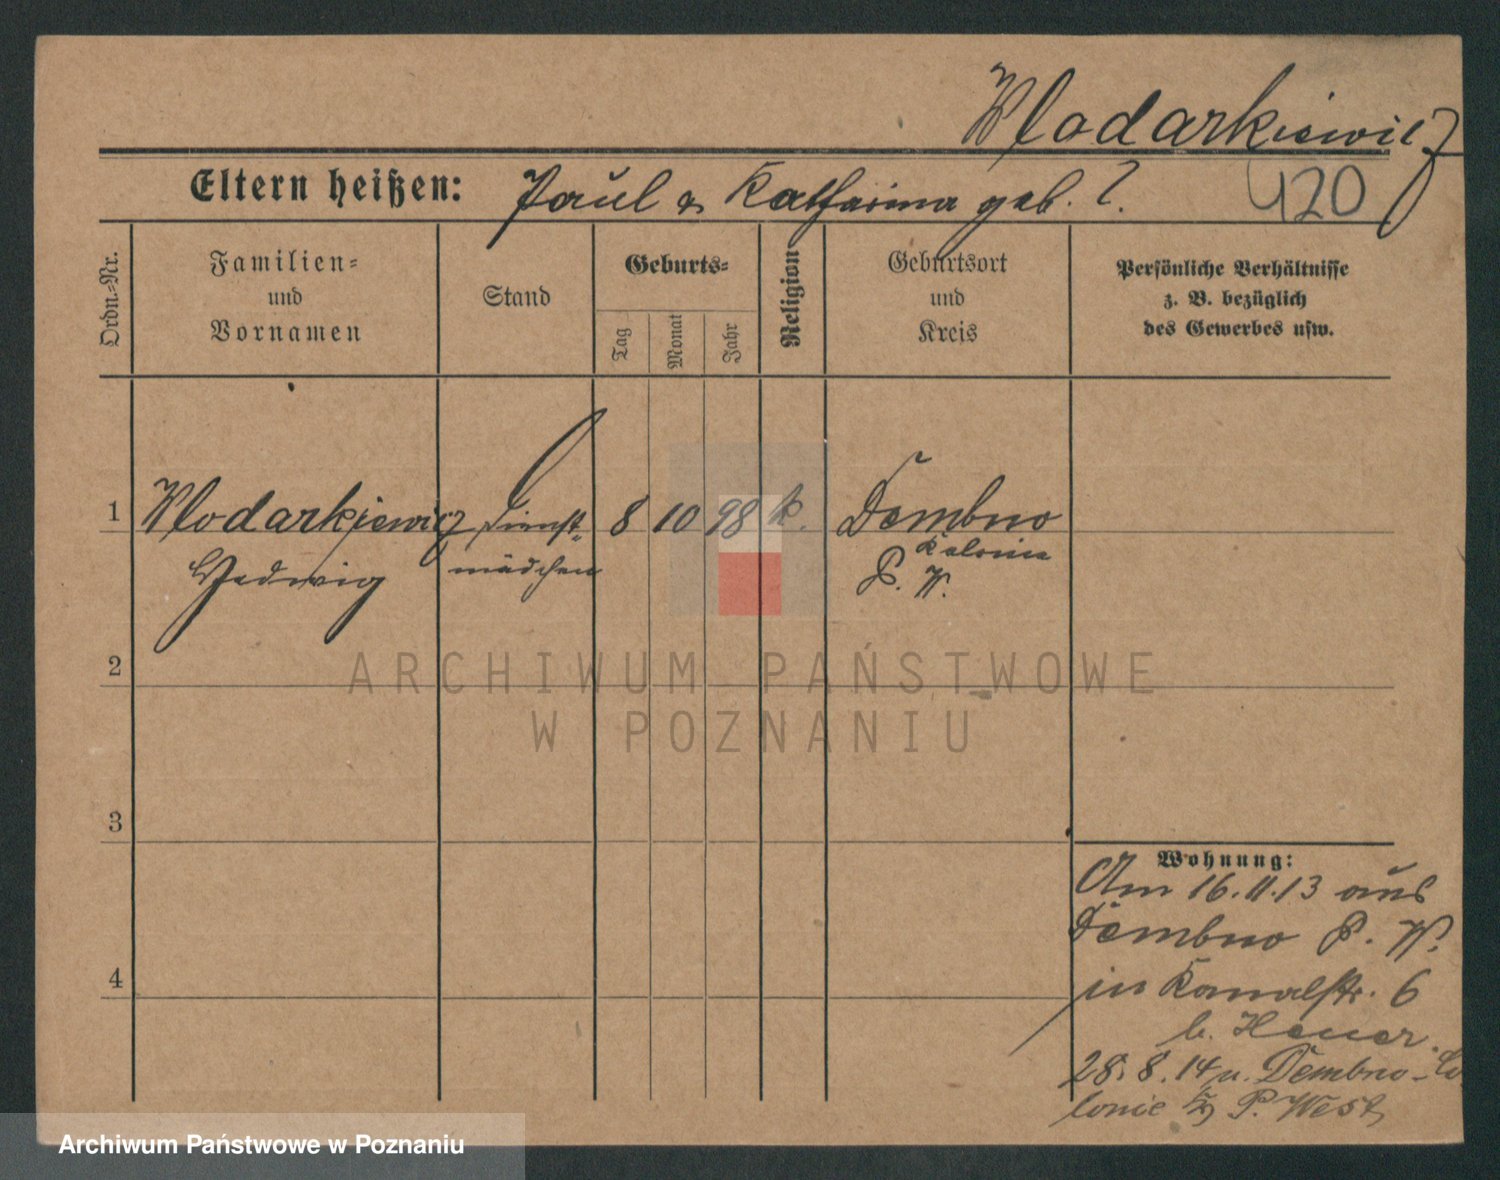 Wlodarkiewicz
Eltern heißen: Paul & Katharina geb. ?.
420
Ordn.-Nr.
Familien-
und
Vornamen
Stand
Geburts-
Tag
Monat
Jahr
Religion
Geburtsort
und
Kreis
Persönliche Verhältnisse
z. B. bezüglich
des Gewerbes usw.
1 Wlodarkiewicz Dienst- 8 10 98 k. Dembno
Hedwig mädchen Kolonie
P. W.
2
ARCHIWUM PAŃSTWOWE
W POZNANIU
3
Wohnung:
Am 16.11.13 aus
Dembno P. W.
4
in Kanalstr. 6
b. Heuer.
28.8.14 n. Dembno-Co
lonie P. West
Archiwum Państwowe w Poznaniu